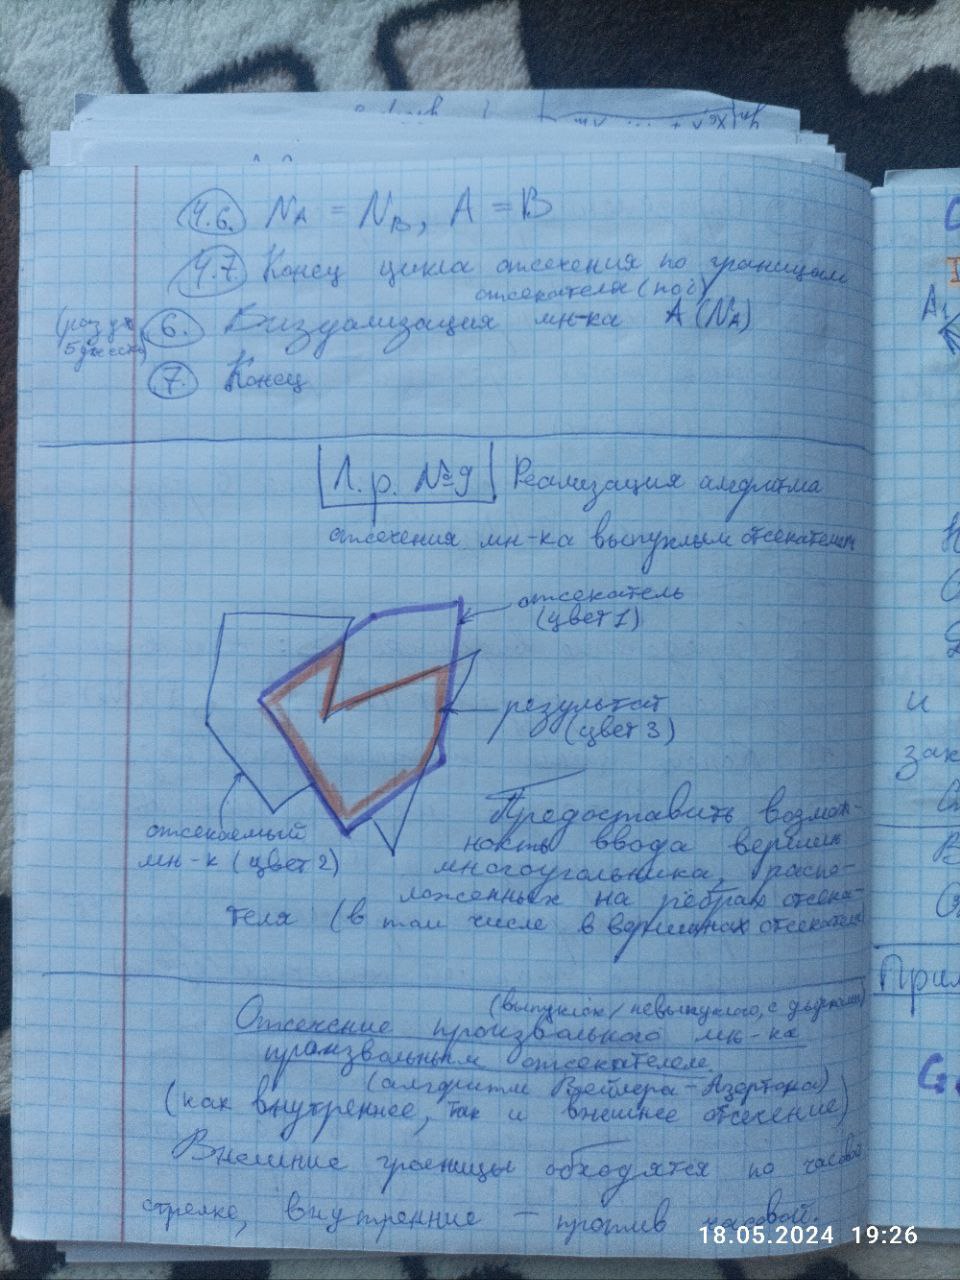 4.6. NA = NB, A = B
4.7 Конец цикла отсечения по границам
отсекателя (по i)
6. Визуализация мн-ка A (NA)
7. Конец
Л.р. №9 Реализация алгоритма
отсечения мн-ка выпуклым отсекателем
отсекатель
(цвет 1)
результат
(цвет 3)
отсекаемый
мн-к (цвет 2)
Предоставить возмож-
ность ввода вершин
многоугольника, распо-
ложенных на рёбрах отсека-
теля (в том числе в вершинах отсекателя
(выпуклого/невыпуклого, с дырками)
Отсечение произвольного мн-ка
произвольным отсекателем
(алгоритм Вейлера-Азертона)
(как внутреннее, так и внешнее отсечение)
Внешние границы обходятся по часовой
стрелке, внутренние - против часовой.
A1
и
зак
При
18.05.2024 19:26